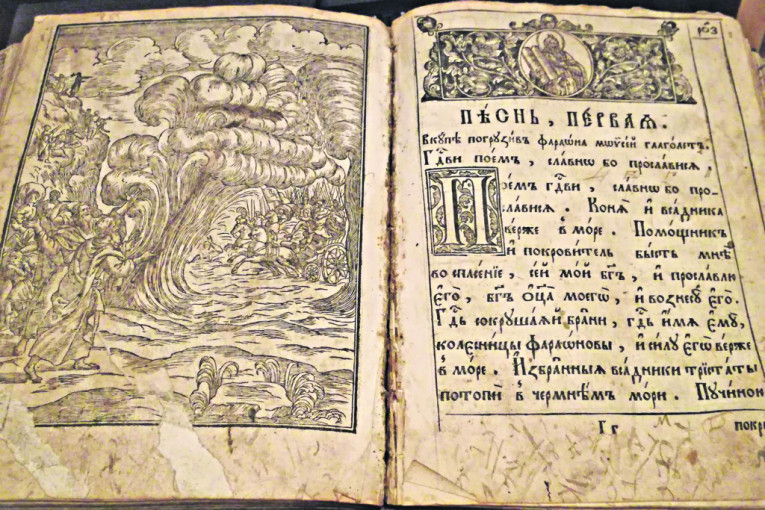 рѯз
ПѢСНЬ, ПЕРВАѦ.
Вкꙋпѣ погрꙋзивъ фараѡна мѡѷсїй глаголетъ.
Гдⷭ҇ви поемъ, славнѡ бо прослависѧ.
Поемъ гдⷭ҇ви, славнѡ бо про-
слависѧ. Конѧ и҆ всадника
верже в̾ море. Помощникъ
и҆ покровитель бысть мнѣ
во спасенїе, сей мой бг҃ъ, и҆ прославлю
є҆го̀, бг҃ъ ѻ҆ц҃а моегѡ, и҆ вознесꙋ є҆го̀.
Гдⷭ҇ь сокрꙋшаѧй брани, гдⷭ҇ь и҆мѧ є҆мꙋ,
колесницы фараѡновы, и҆ силꙋ є҆гѡ̀ верже
в̾ море. И҆збранныѧ всадники трїстаты
потопѝ в̾ чермнѣмъ мори. Пꙋчиною
Гг покры